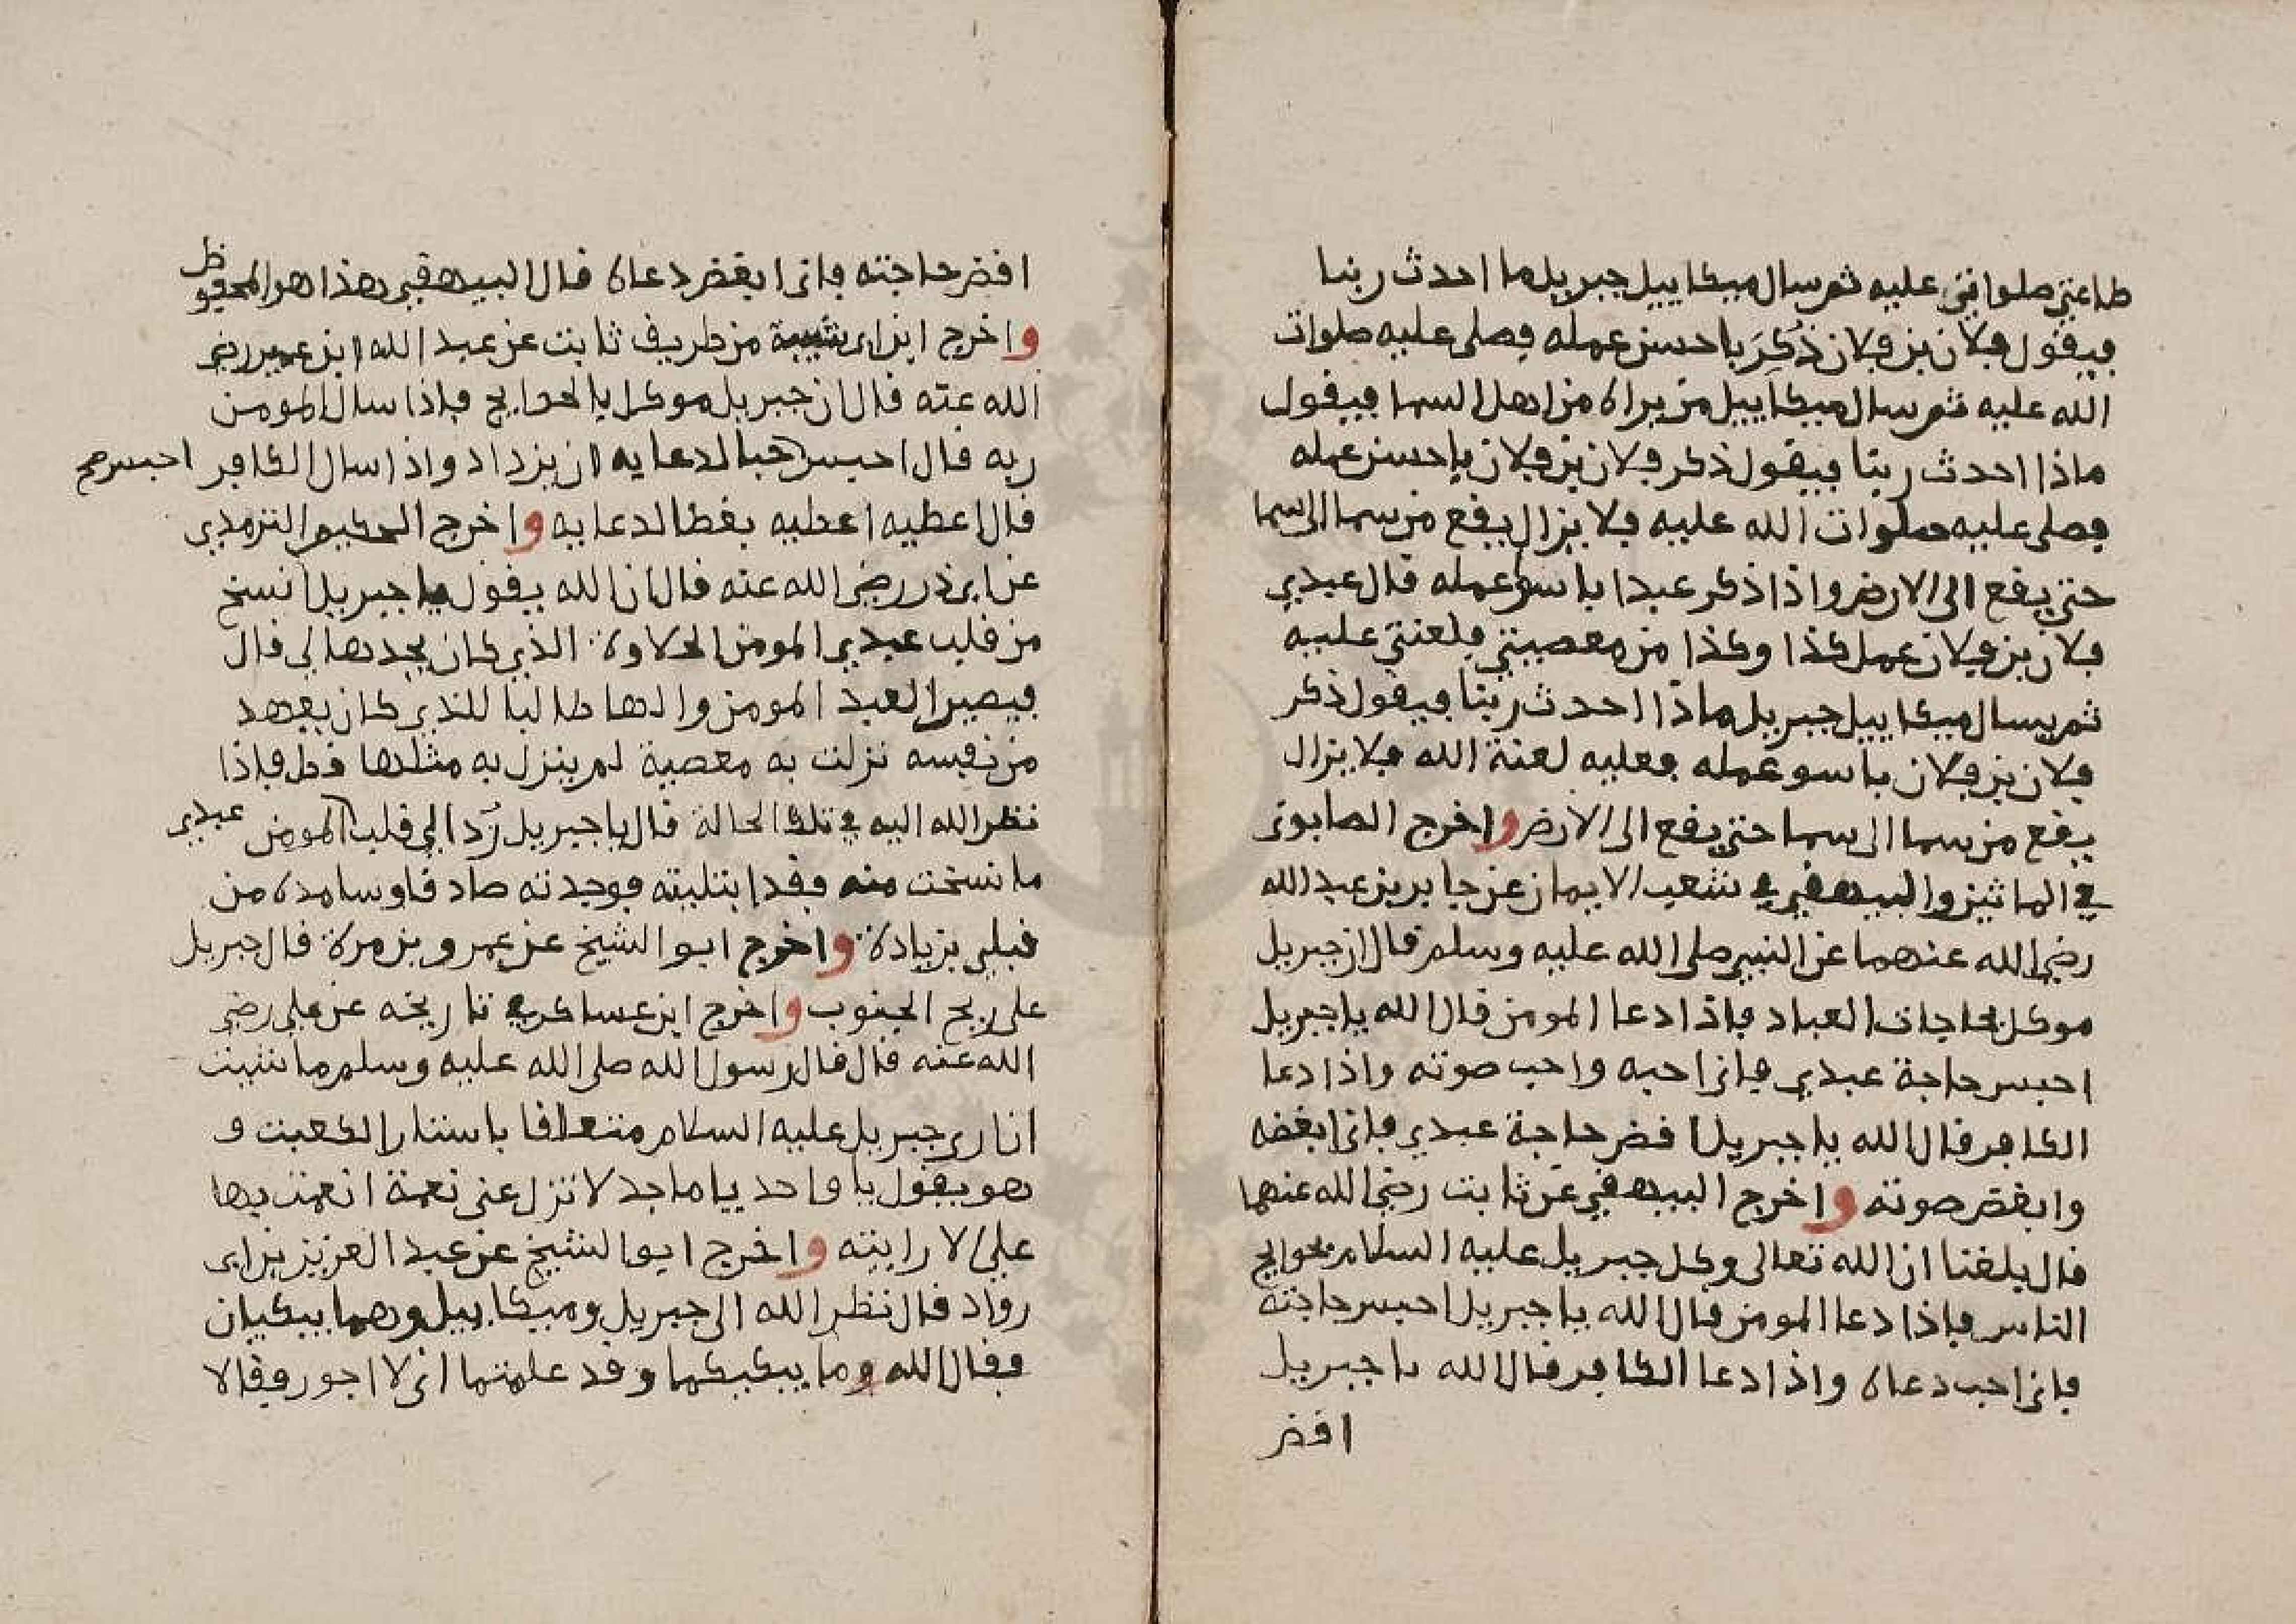 طاعتي صلواتي عليه ثم سال ميكاييل جبريل ما احدث ربنا
فيقول فلان بن فلان ذُكِرَ باحسن عمله فصلى عليه صلوات
الله عليه ثم سال ميكاييل من يراه من اهل السما فيقول
ماذا احدث ربنا فيقول ذكر فلان بن فلان باحسن عمله
فصلى عليه صلوات الله عليه فلا يزال يقع من سما الى سما
حتى يقع الى الارض واذا ذكر عبدا باسوء عمله قال عبدي
فلان بن فلان عمل كذا وكذا من معصيتي فلعنتي عليه
ثم يسال ميكاييل جبريل ماذا احدث ربنا فيقول ذكر
فلان بن فلان باسو عمله فعليه لعنة الله فلا يزال
يقع من سما الى سما حتى يقع الى الارض واخرج الصابونى
في الماتين والبيهقي في شعب الايمان عن جابر بن عبد الله
رضي الله عنهما عن النبي صلى الله عليه وسلم قال ان جبريل
موكل بحاجات العباد فاذا دعا المومن قال الله يا جبريل
احبس حاجة عبدي فانى احبه واحب صوته واذا دعا
الكافر قال الله يا جبريل اقض حاجة عبدي فانى ابغضه
وابغض صوته واخرج البيهقي عن ثابت رضي الله عنهما
قال بلغنا ان الله تعالى وكل جبريل عليه السلام بحوايج
الناس فاذا دعا المومن قال الله يا جبريل احبس حاجته
فانى احب دعاه واذا دعا الكافر قال الله يا جبريل
اقض
اقض حاجته فانى ابغض دعاه قال البيهقي هذا هو المحفوظ
واخرج ابن ابى شيبة من طريق ثابت عن عبد الله ابن عمير رضي
الله عنه قال ان جبريل موكل بالحوايج فاذا سال المومن
ربه قال احبس حبا لدعايه ان يزداد واذا سال الكافر احبس صح
قال اعطيه اعطيه بغضا لدعايه واخرج الحكيم الترمذي
عن ابى ذر رضي الله عنه قال ان الله يقول يا جبريل انسخ
من قلب عبدي المومن الحلاوة الذي كان يجدها لى قال
فيصير العبد المومن والها طالبا للذي كان يعهد
من نفسه نزلت به معصية لم ينزل به مثلها قط فاذا
نظر الله اليه في تلك الحالة قال يا جبريل رُد الى قلب المومن عبدي
ما نسخت منه فقد ابتليته فوجدته صادقا وسامده من
قبلى بزيادة واخرج ابو الشيخ عن عمرو بن مرة قال جبريل
على ريح الجنوب واخرج ابن عساكر في تاريخه عن على رضي
الله عنه قال قال رسول الله صلى الله عليه وسلم ما شيت
ان ارى جبريل عليه السلام متعلقا باستار الكعبت و
هو يقول يا واحد يا ماجد لا تزل عنى نعمة انعمت بها
على الا رايته واخرج ابو الشيخ عن عبد العزيز بن ابى
رواد قال نظر الله الى جبريل وميكاييل وهما يبكيان
فقال الله وما يبكيكما وقد علمتما انى لا اجور فقالا